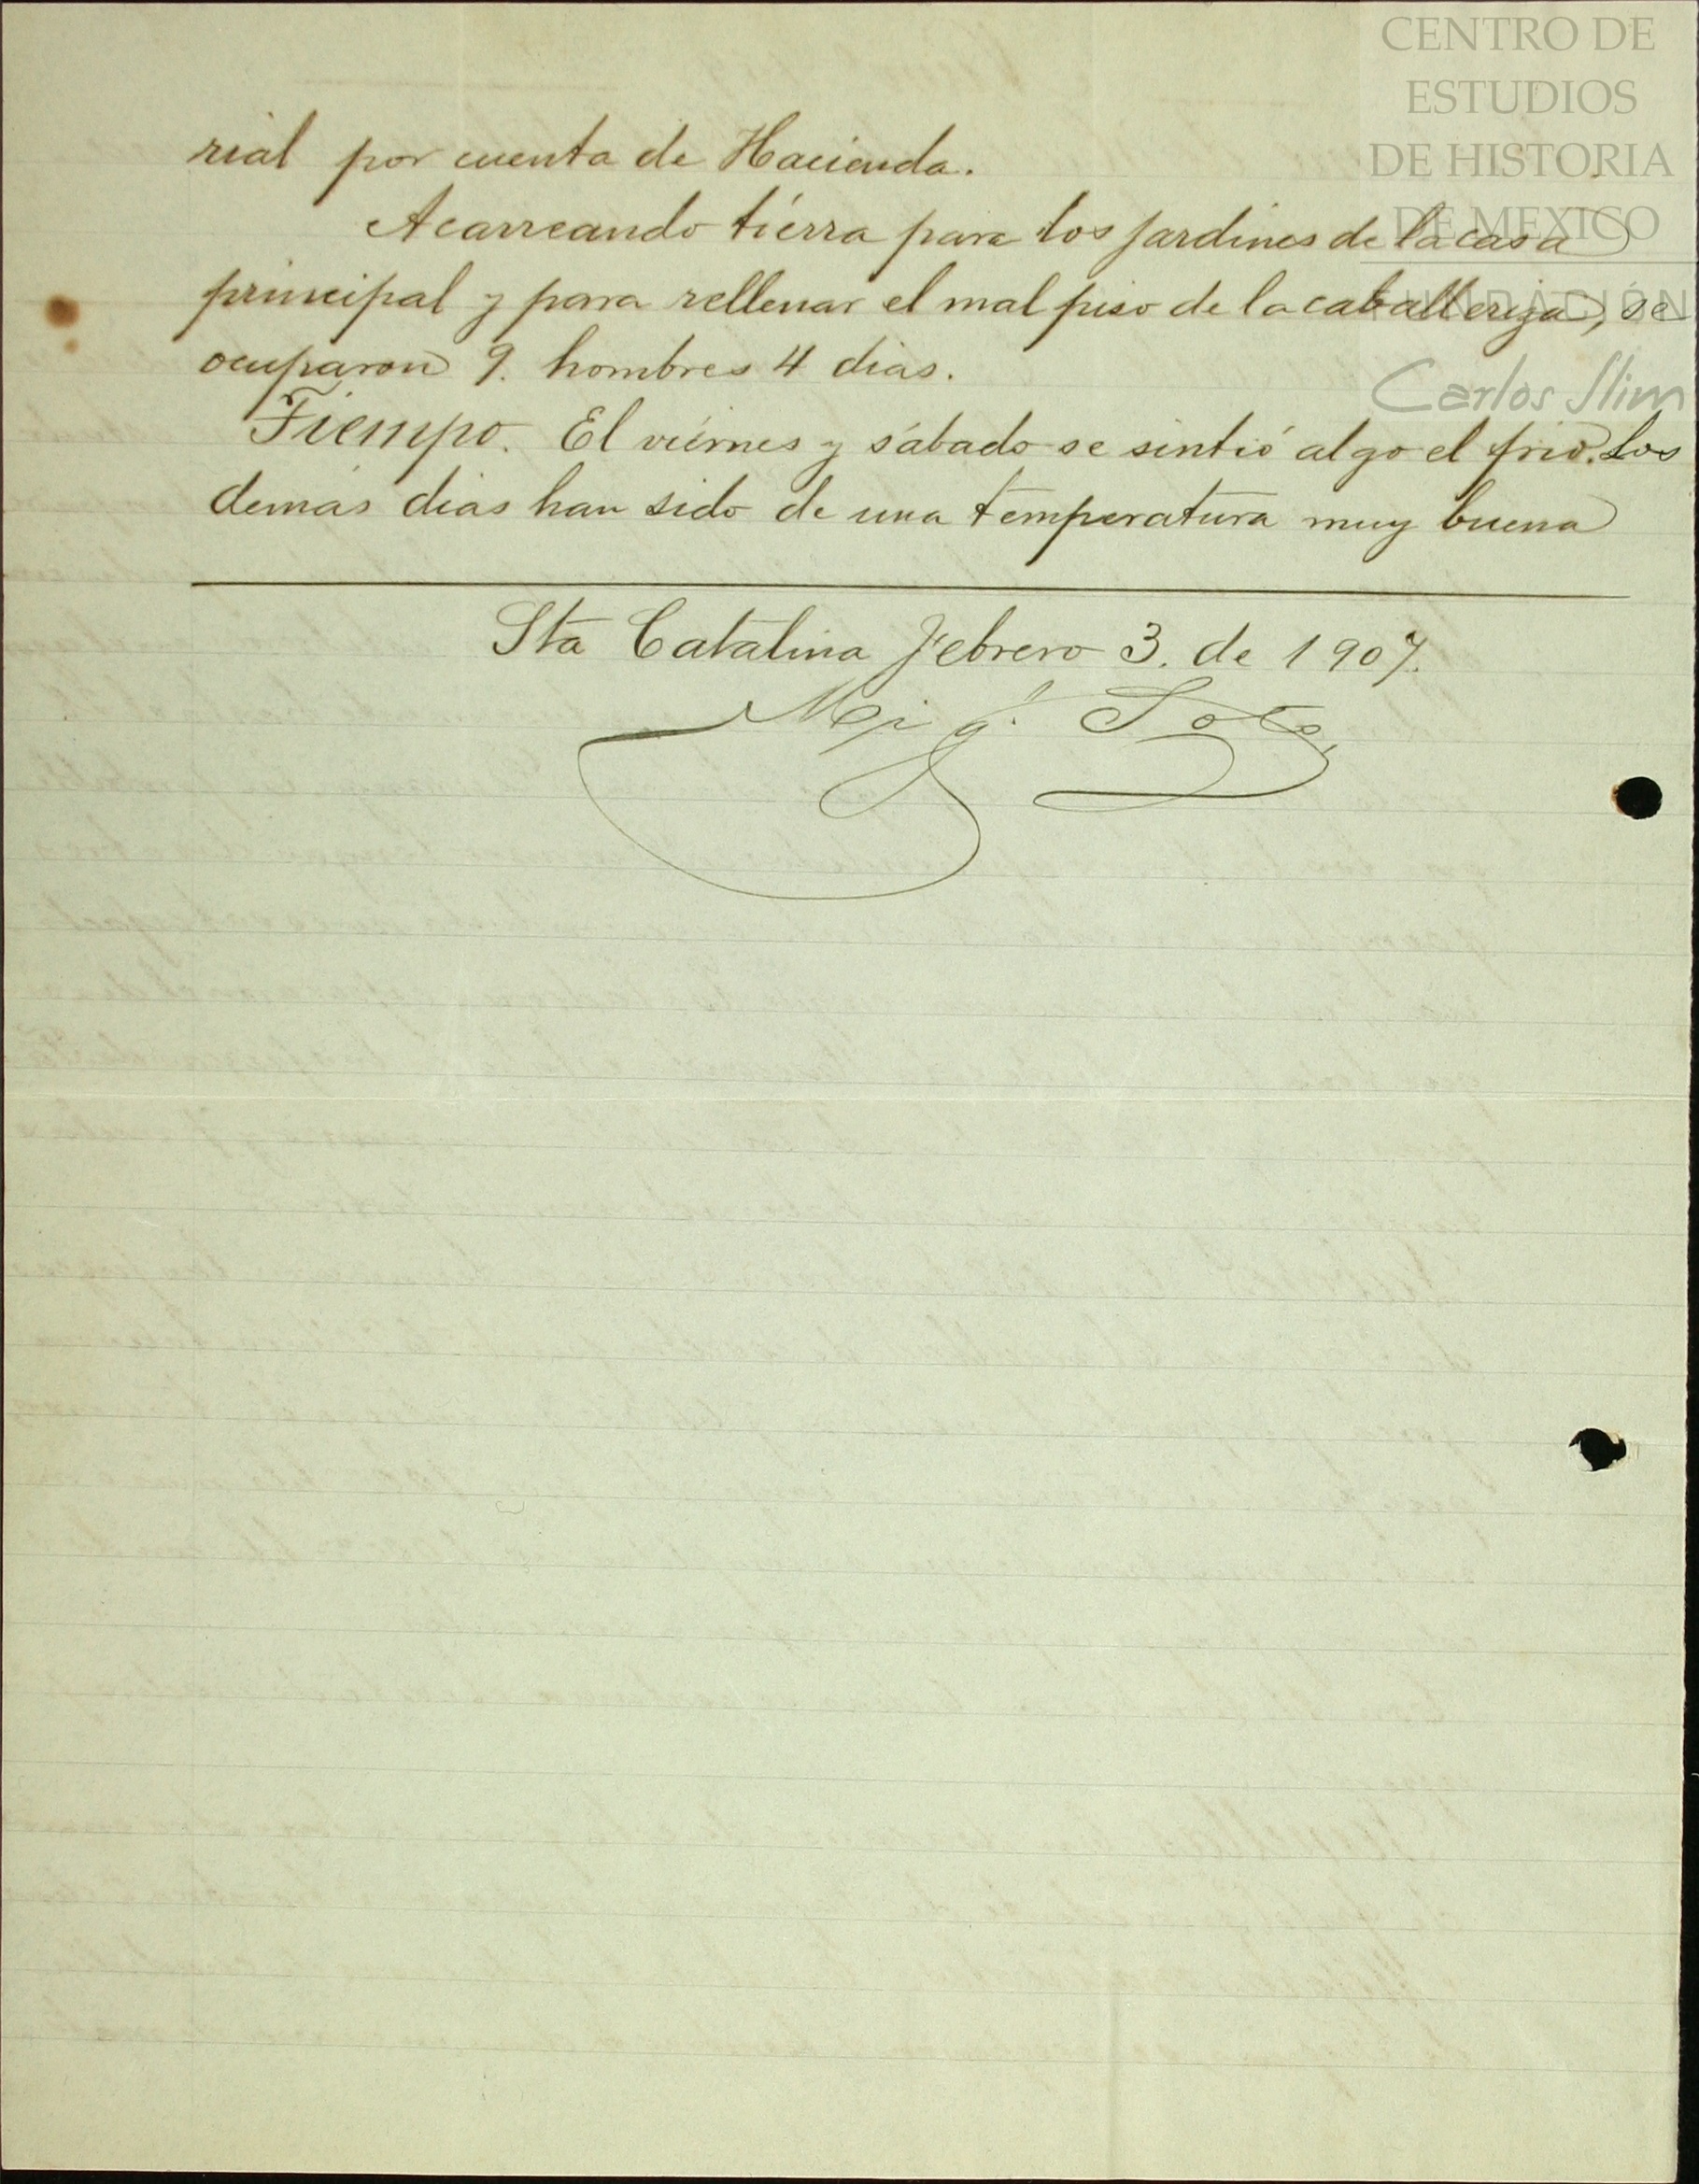 CENTRO DE
ESTUDIOS
DE HISTORIA
DE MEXICO
FUNDACIÓN
Carlos Slim
rial por cuenta de Hacienda.
Acarreando tiérra para los jardines de la casa
principal y para rellenar el mal piso de la caballeriza, se
ocuparon 9. hombres 4 dias.
Tiempo. El viérnes y sábado se sintió algo el frio. Los
demás dias han sido de una temperatura muy buena
Sta Catalina Febrero 3. de 1907.
Mig. Soto